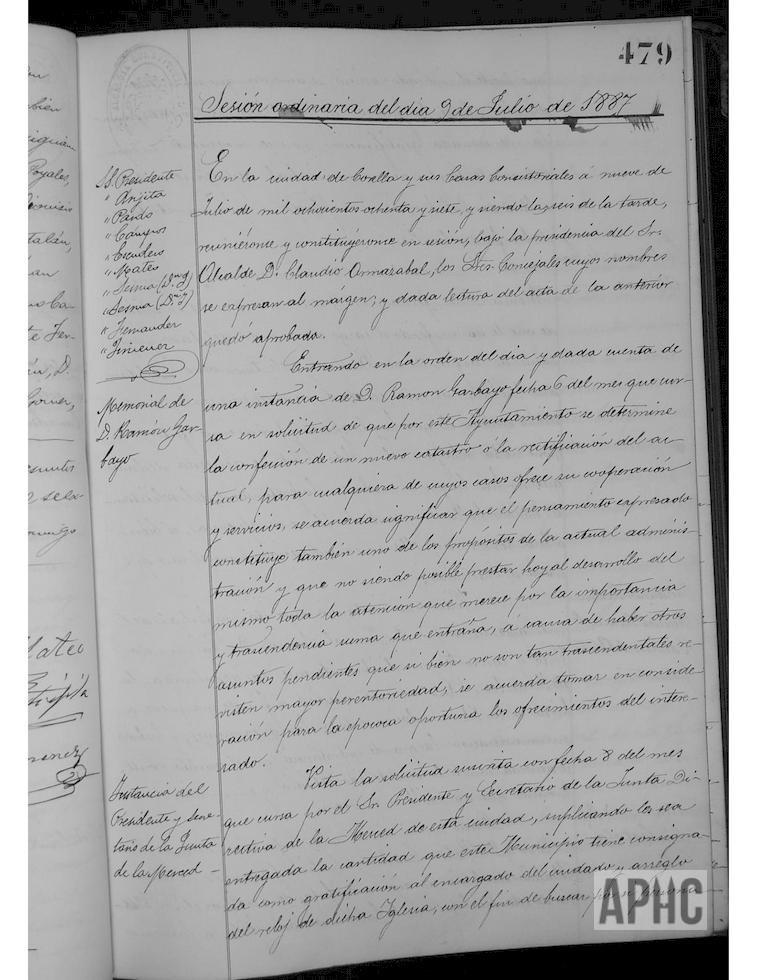 479
Sesión ordinaria del dia 9 de Julio de 1887
SS. Presidente
" Arijita
" Pardo
" Campos
" Escudero
" Mateo
" Sesma (D.n
" Sesma (D.n
" Fernandez
" Jimenez
En la ciudad de Corella y sus Casas Consistoriales á nueve de
Julio de mil ochocientos ochenta y siete, y siendo las seis de la tarde,
reuniéronse y constituyéronse en sesión, bajo la presidencia del Sr.
Alcalde D. Claudio Ormazabal, los Sres. Concejales cuyos nombres
se expresan al márgen; y dada lectura del acta de la anterior
quedó aprobada.
Memorial de
D. Ramón Gar-
bayo
Entrando en la orden del dia y dada cuenta de
una instancia de D. Ramon Garbayo fecha 6 del mes que cur-
sa en solicitud de que por este Ayuntamiento se determine
la confección de un nuevo catastro ó la rectificación del ac-
tual, para cualquiera de cuyos casos ofrece su cooperación
y servicios, se acuerda significar que el pensamiento expresado
constituye también uno de los propósitos de la actual adminis-
tración y que no siendo posible prestar hoy al desarrollo del
mismo toda la atención que merece por la importancia
y trascendencia suma que entraña, a causa de haber otros
asuntos pendientes que si bien no son tan trascendentales re-
visten mayor perentoriedad, se acuerda tomar en conside-
ración para la epococa oportuna los ofrecimientos del intere-
sado.
Instancia del
Presidente y Secre-
tario de la Junta
de la Merced -
Vista la solicitud suscrita con fecha 8 del mes
que cursa por el Sr. Presidente y Secretario de la Junta Di-
rectiva de la Merced de esta ciudad, suplicando les sea
entregada la cantidad que este Municipio tiene consigna-
da como gratificación al encargado del cuidado y arreglo
del reloj de dicha Iglesia, con el fin de buscar por si persona
APHC